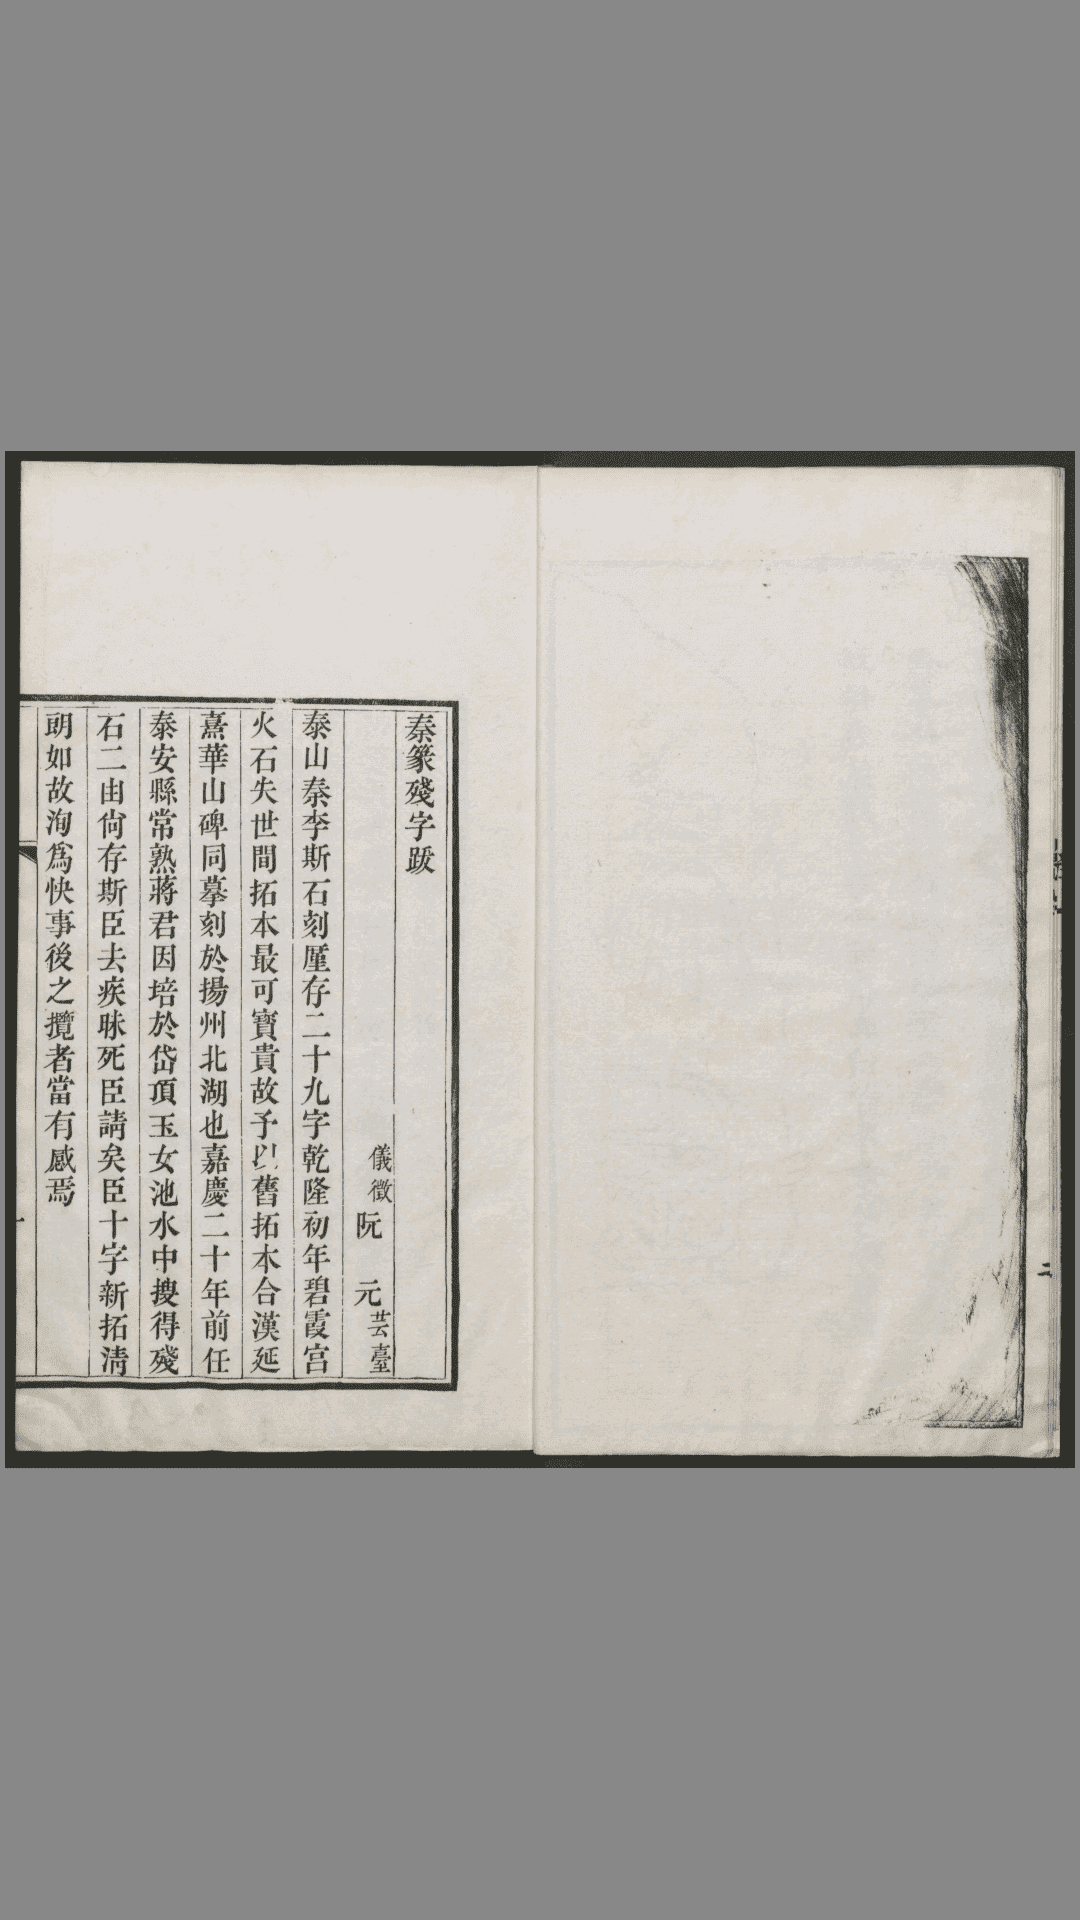 二
秦篆殘字跋
儀徵阮　元芸臺
泰山秦李斯石刻厪存二十九字乾隆初年碧霞宮
火石失世間拓本最可寶貴故予以舊拓本合漢延
熹華山碑同摹刻於揚州北湖也嘉慶二十年前任
泰安縣常熟蔣君因培於岱頂玉女池水中搜得殘
石二凷尙存斯臣去疾昧死臣請矣臣十字新拓淸
朙如故洵爲快事後之攬者當有感焉